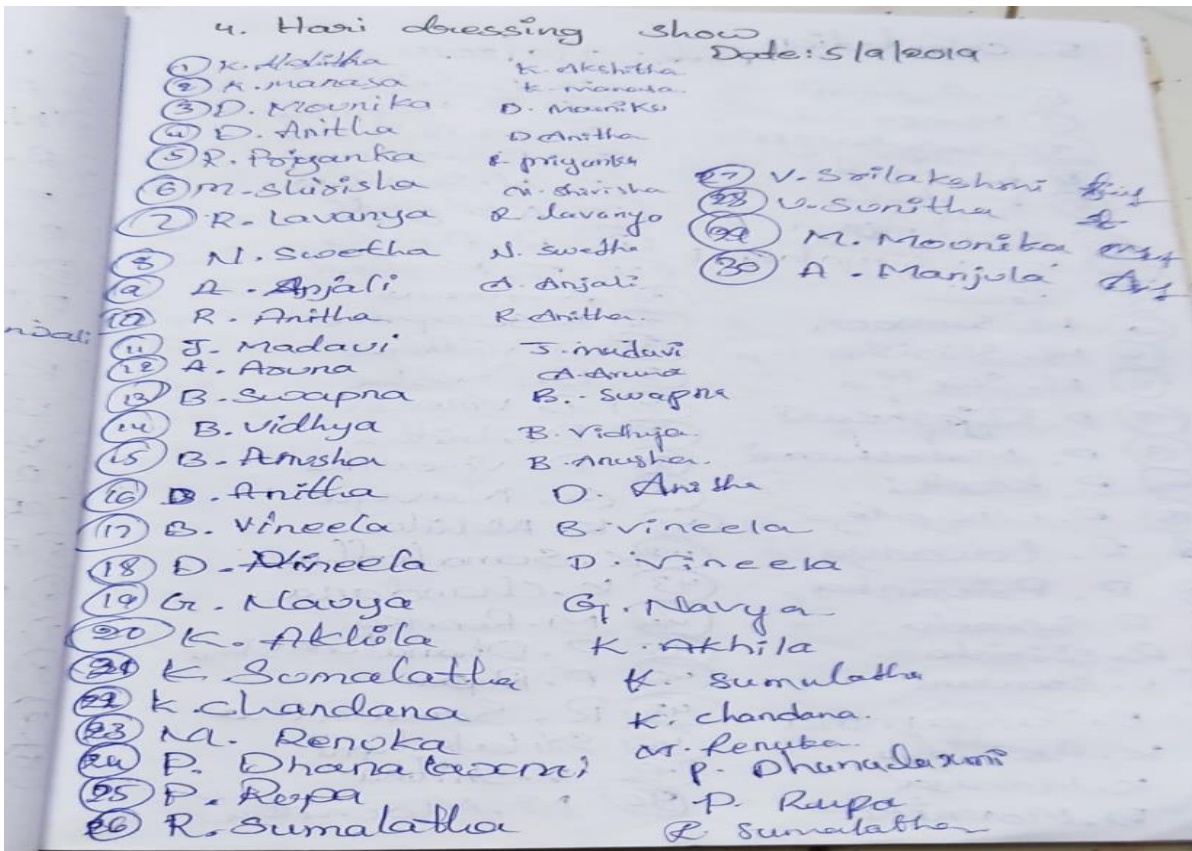 4. Hari dressing show
Date: 5/9/2019
1 K. Akshitha
2 K. Manasa K. Manasa
3 D. Mounika D. Mounika
4 D. Anitha D Anitha
5 R. Priyanka R priyanka
6 M. Shirisha M. Shirisha
7 R. Lavanya R lavanya
8 N. Swetha N. Swetha
9 A. Anjali A. Anjali
10 R. Anitha R Anitha
11 J. Madavi J. madavi
12 A. Aruna A. Aruna
13 B. Swapna B. Swapna
14 B. Vidhya B. Vidhya
15 B. Anusha B. Anusha
16 D. Anitha D. Anitha
17 B. Vineela B. Vineela
18 D. Vineela D. Vineela
19 G. Navya G. Navya
20 K. Akhila K. Akhila
21 K Sumalatha K. Sumulatha
22 K chandana K. chandana
23 M. Renuka M. Renuka
24 P. Dhanalaxmi P. Dhanalaxmi
25 P. Rupa P. Rupa
26 R. Sumalatha R Sumalatha
27 V. Srilakshmi
28 V. Sunitha
29 M. Mounika
30 A. Manjula